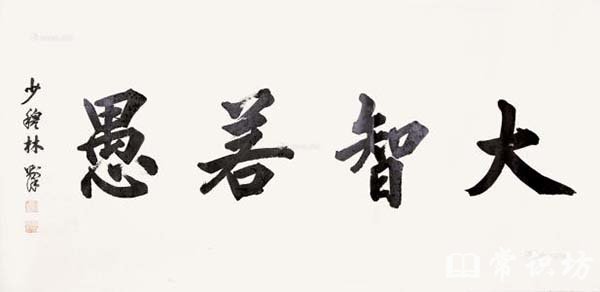 大智若愚
少穆林則徐
常识坊